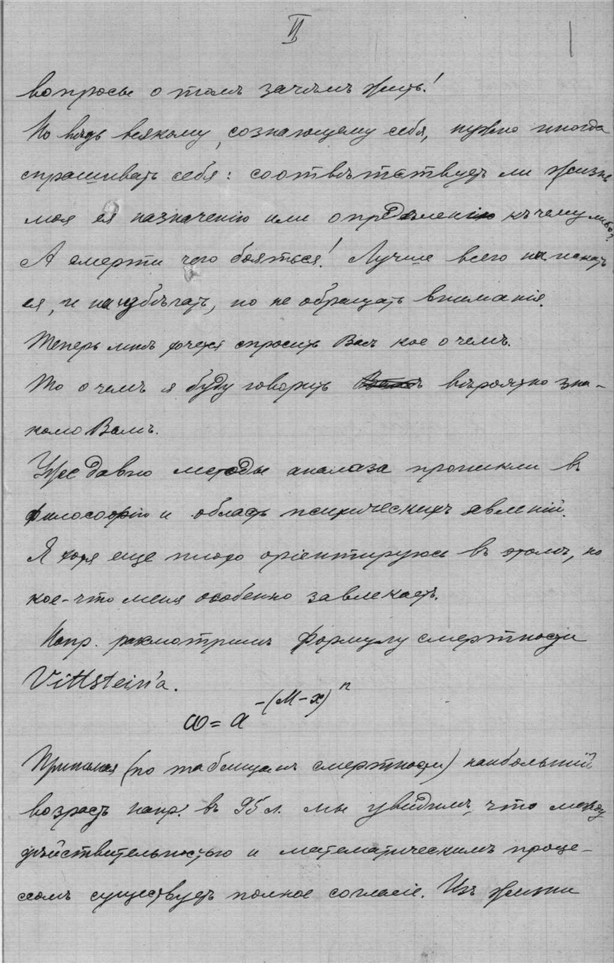 II
вопросы о томъ зачѣмъ жить!
Но вѣдь всякому, сознающему себя, нужно иногда
спрашивать себя: соотвѣтствуетъ ли жизнь
моя ея назначенію или опредѣленію къ чему либо?
А смерти чего бояться! Лучше всего не искать
ея, и не избѣгать, но не обращать вниманія.
Теперь мнѣ хочется спросить Васъ кое о чемъ.
То о чемъ я буду говорить вѣроятно зна-
комо Вамъ.
Уже давно методы анализа проникли въ
философію и область психическихъ явленій.
Я хотя еще плохо оріентируюсь въ этомъ, но
кое-что меня особенно завлекаетъ.
Напр. разсмотримъ формулу смертности
Vittstein'a.
ω = a^{-(M-x)^n}
Принимая (по таблицамъ смертности) наибольшій
возрастъ напр. въ 95 л. мы увидимъ, что между
дѣйствительностью и математическимъ проце-
ссомъ существуетъ полное согласіе. Изъ жизни